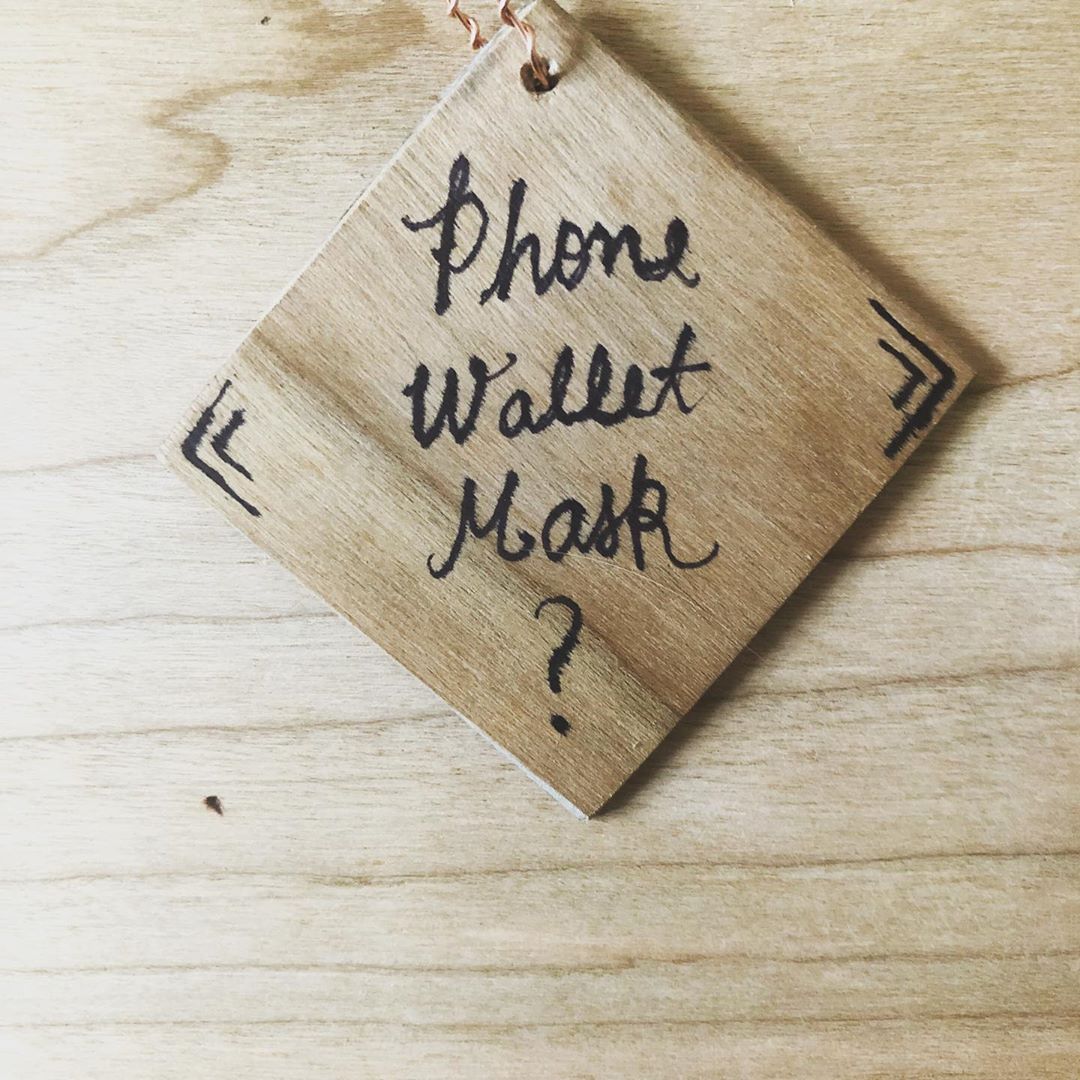 Phone
Wallet
Mask
?